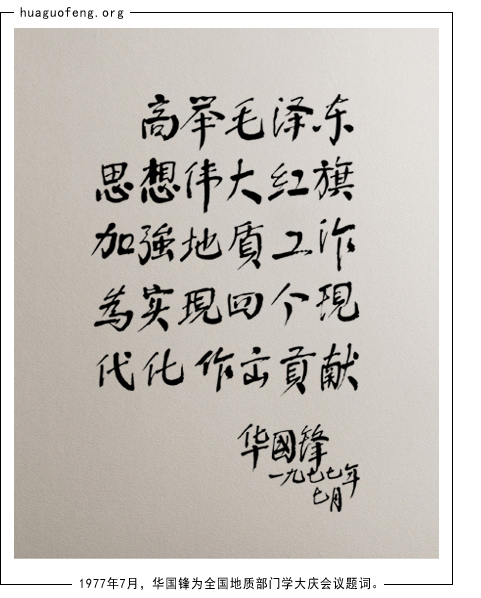 huaguofeng.org
高举毛泽东
思想伟大红旗
加强地质工作
為实現四个現
代化作出貢献
华國锋
一九七七年
七月
1977年7月，华国锋为全国地质部门学大庆会议题词。